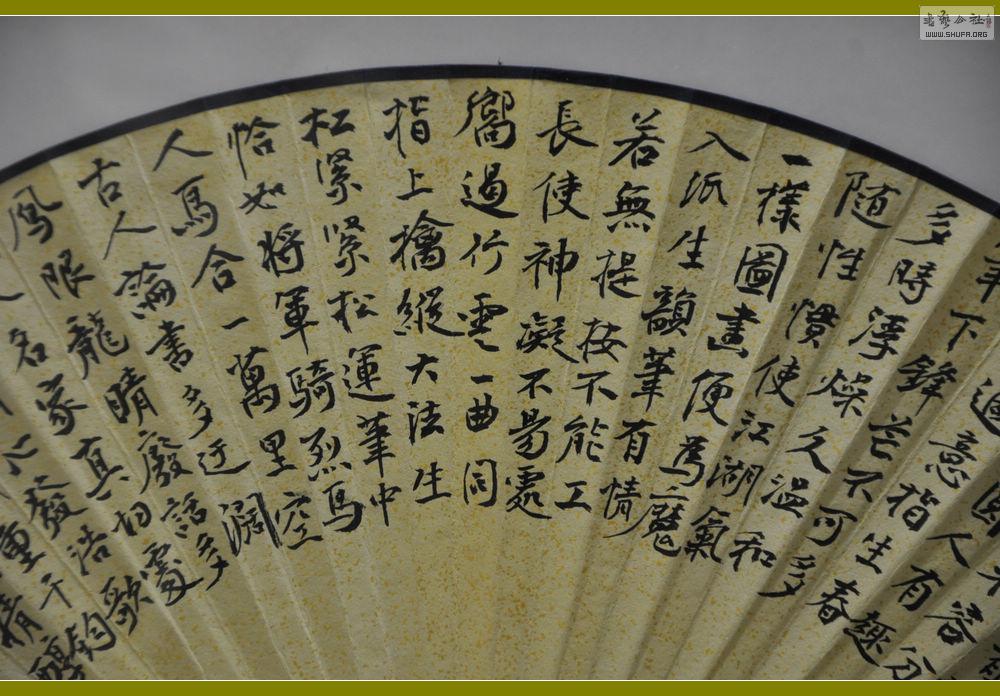 意指生春
人有趣
下鋒芒不可多
多時淳燥久温和
随性慣使江湖氣
一樣圖畫便為魔
入派生韻筆有情
若無提按不能工
長使神凝不易處
嚮遏行雲一曲同
指上擒縱大法生
松緊緊松運筆中
恰如將軍騎烈馬
人馬合一萬里空
古人論書多迂闊
鳳眼龍睛廢話多
名家真切處
心發浩歌
重千鈞
精醇
書藝公社
WWW.SHUFA.ORG